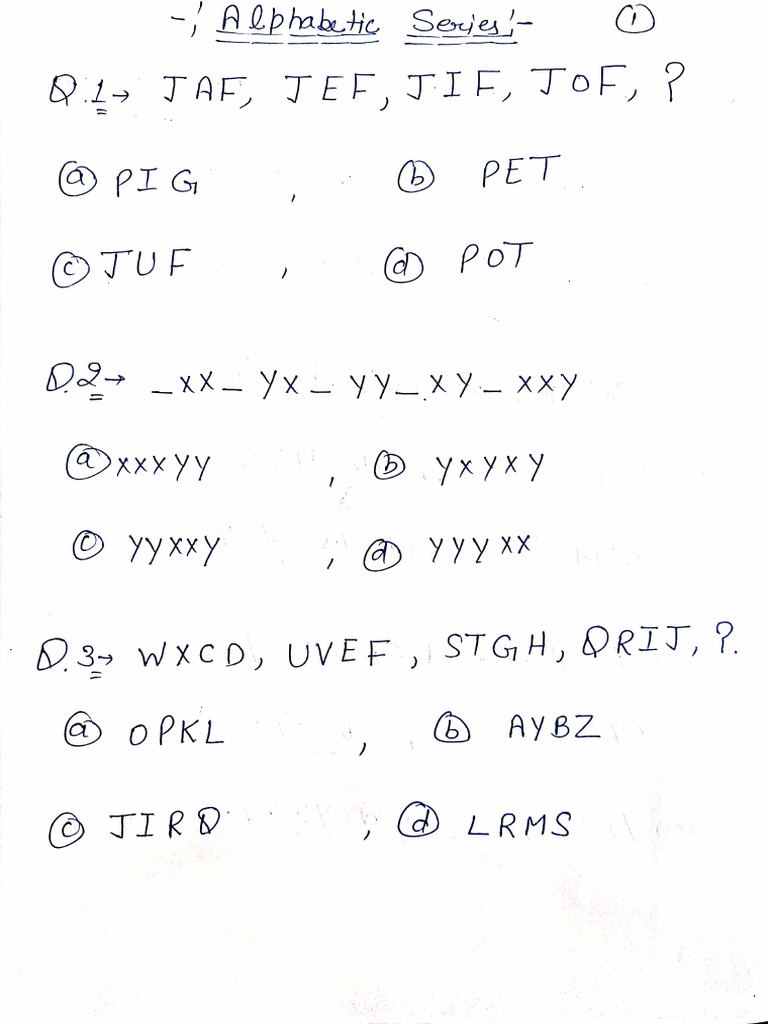 -:' Alphabetic Series:- ①
Q.1→ JAF, JEF, JIF, JOF, ?
ⓐ PIG , ⓑ PET
ⓒ JUF , ⓓ POT
Q.2→ _xx_ yx_ yy_xy_ xxy
ⓐ xxxyy , ⓑ yxyxy
ⓒ yyxxy , ⓓ yyyxx
Q.3→ WXCD, UVEF, STGH, QRIJ, ?.
ⓐ OPKL , ⓑ AYBZ
ⓒ JIRQ , ⓓ LRMS